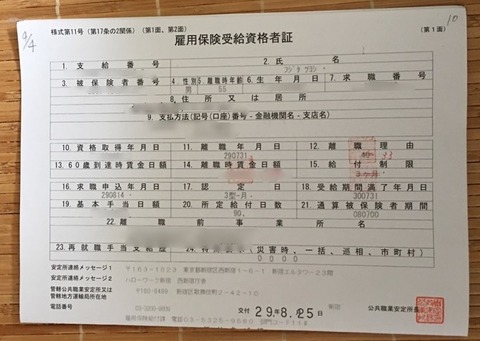 9/4
10
様式第11号(第17条の2関係)(第1面、第2面)
(第1面)
雇用保険受給資格者証
1. 支給番号
2. 氏名
3. 被保険者番号
4. 性別
5. 離職時年齢
6. 生年月日
7. 求職番号
男
55
8. 住所又は居所
9. 支払方法(記号(口座)番号-金融機関名-支店名)
10. 資格取得年月日
11. 離職年月日
12. 離職理由
290731
40
33
13. 60歳到達時賃金日額
14. 離職時賃金日額
15. 給付制限
3ヶ月
16. 求職申込年月日
17. 認定日
18. 受給期間満了年月日
290814
3型-月-
300731
19. 基本手当日額
20. 所定給付日数
21. 通算被保険者期間
90
080700
22. 離職前事業所名
23. 再就職手当支給歴
(災害時、一括、巡相、市町村)
0 0 0 0
安定所連絡メッセージ1
〒163-1523 東京都新宿区西新宿1-6-1 新宿エルタワー23階
安定所連絡メッセージ2
ハローワーク新宿 西新宿庁舎
管轄公共職業安定所又は
管轄地方運輸局所在地
新宿区歌舞伎町2-42-10
電話番号
交付 29.8.25
新宿
公共職業安定所長
雇用保険給付課 電話03-5325-9580